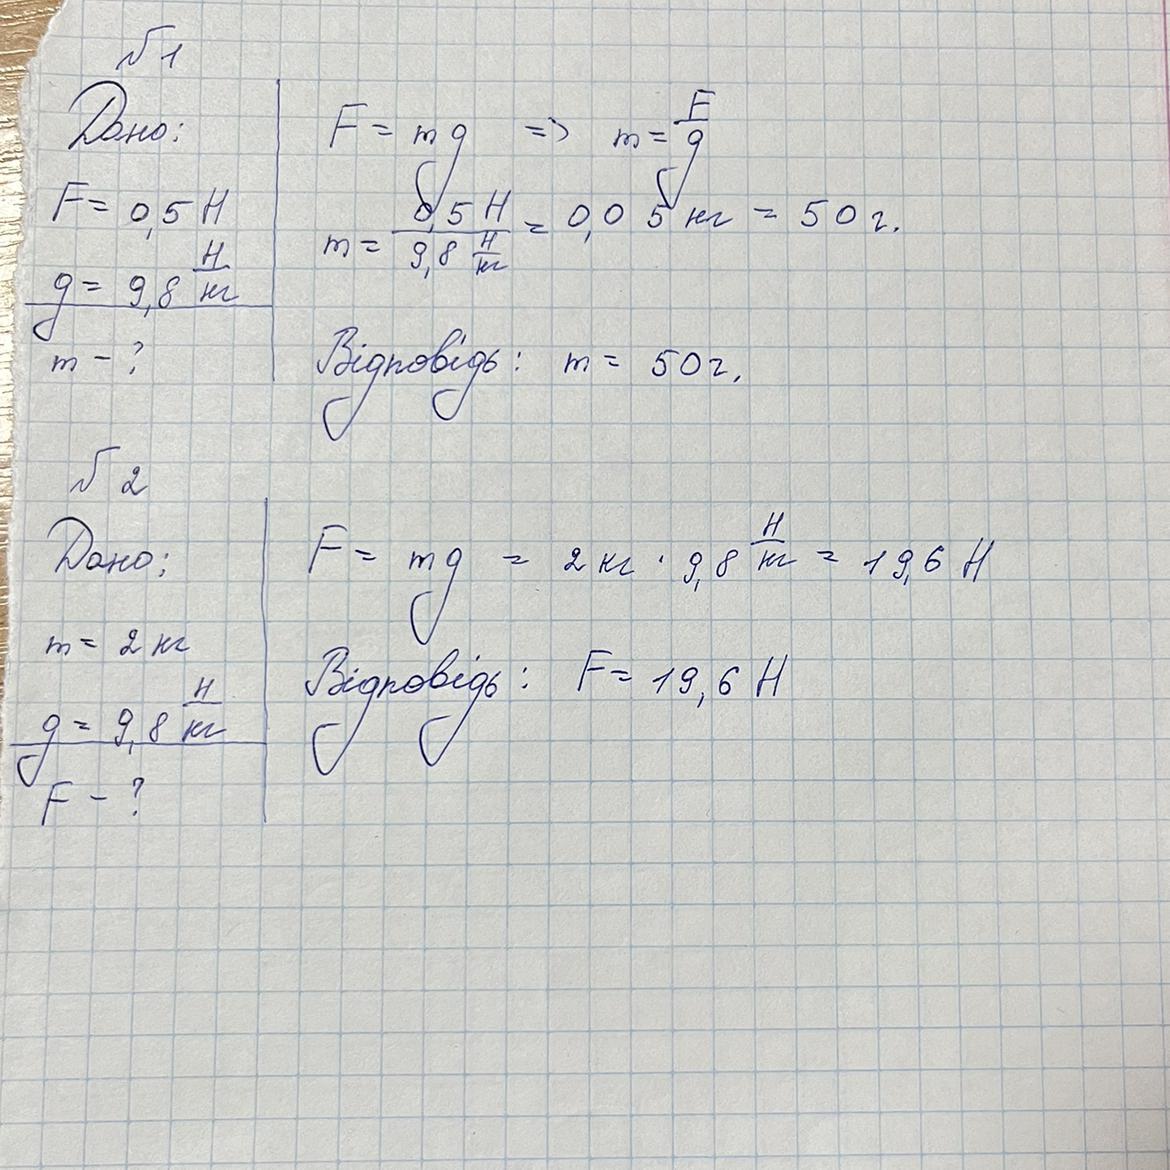 №1
Дано:
F = 0,5 Н
g = 9,8 Н/кг
m - ?
F = mg => m = F/g
m = 0,5 Н / 9,8 Н/кг = 0,05 кг = 50 г.
Відповідь: m = 50 г.
№2
Дано:
m = 2 кг
g = 9,8 Н/кг
F - ?
F = mg = 2 кг · 9,8 Н/кг = 19,6 Н
Відповідь: F = 19,6 Н